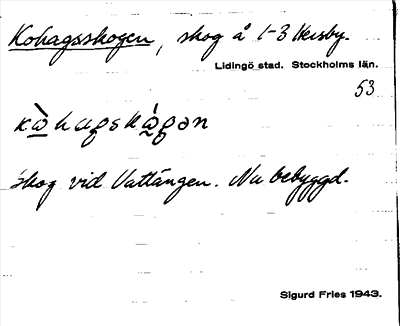 Kohagsskogen, skog å 1-3 Hersby.
Lidingö stad. Stockholms län.
53
kὰhagskὰgən
Skog vid Vattängen. Nu bebyggd.
Sigurd Fries 1943.